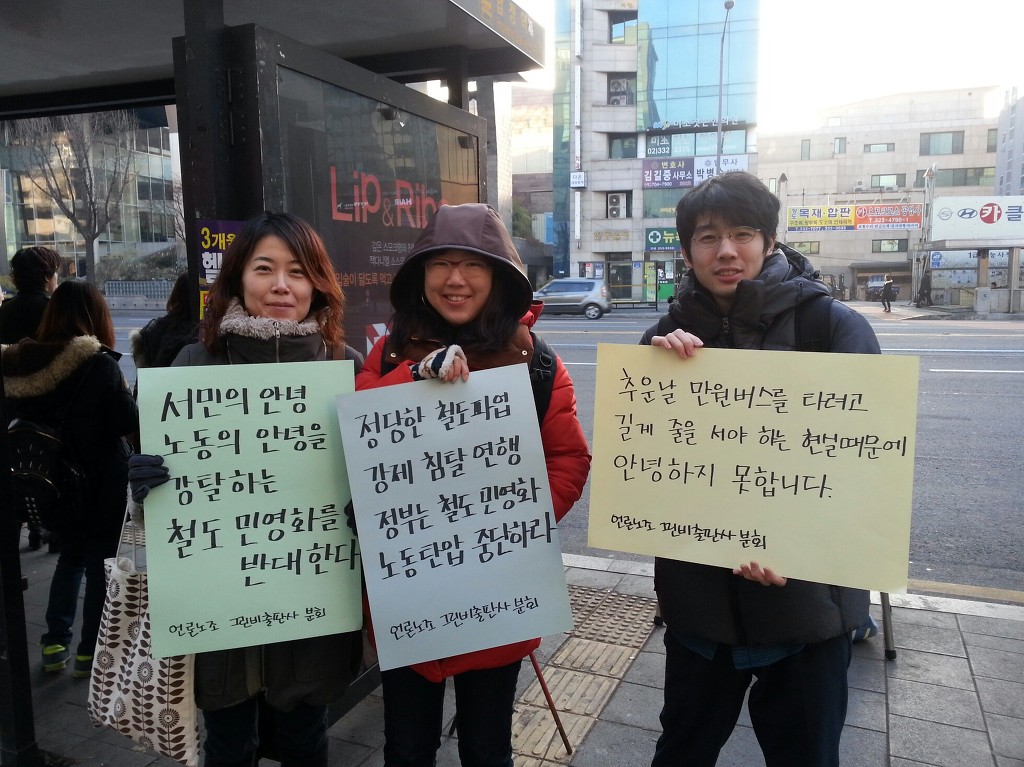 서민의 안녕
노동의 안녕을
강탈하는
철도 민영화를
반대한다
언론노조 그린비출판사 분회
정당한 철도파업
강제 침탈 연행
정부는 철도 민영화
노동탄압 중단하라
언론노조 그린비출판사 분회
추운날 만원버스를 타려고
길게 줄을 서야 하는 현실때문에
안녕하지 못합니다.
언론노조 그린비출판사 분회
3개월
Lip
HAIR
미조
02)332
변호사
김길중 사무소
법무사
목재·합판
카클